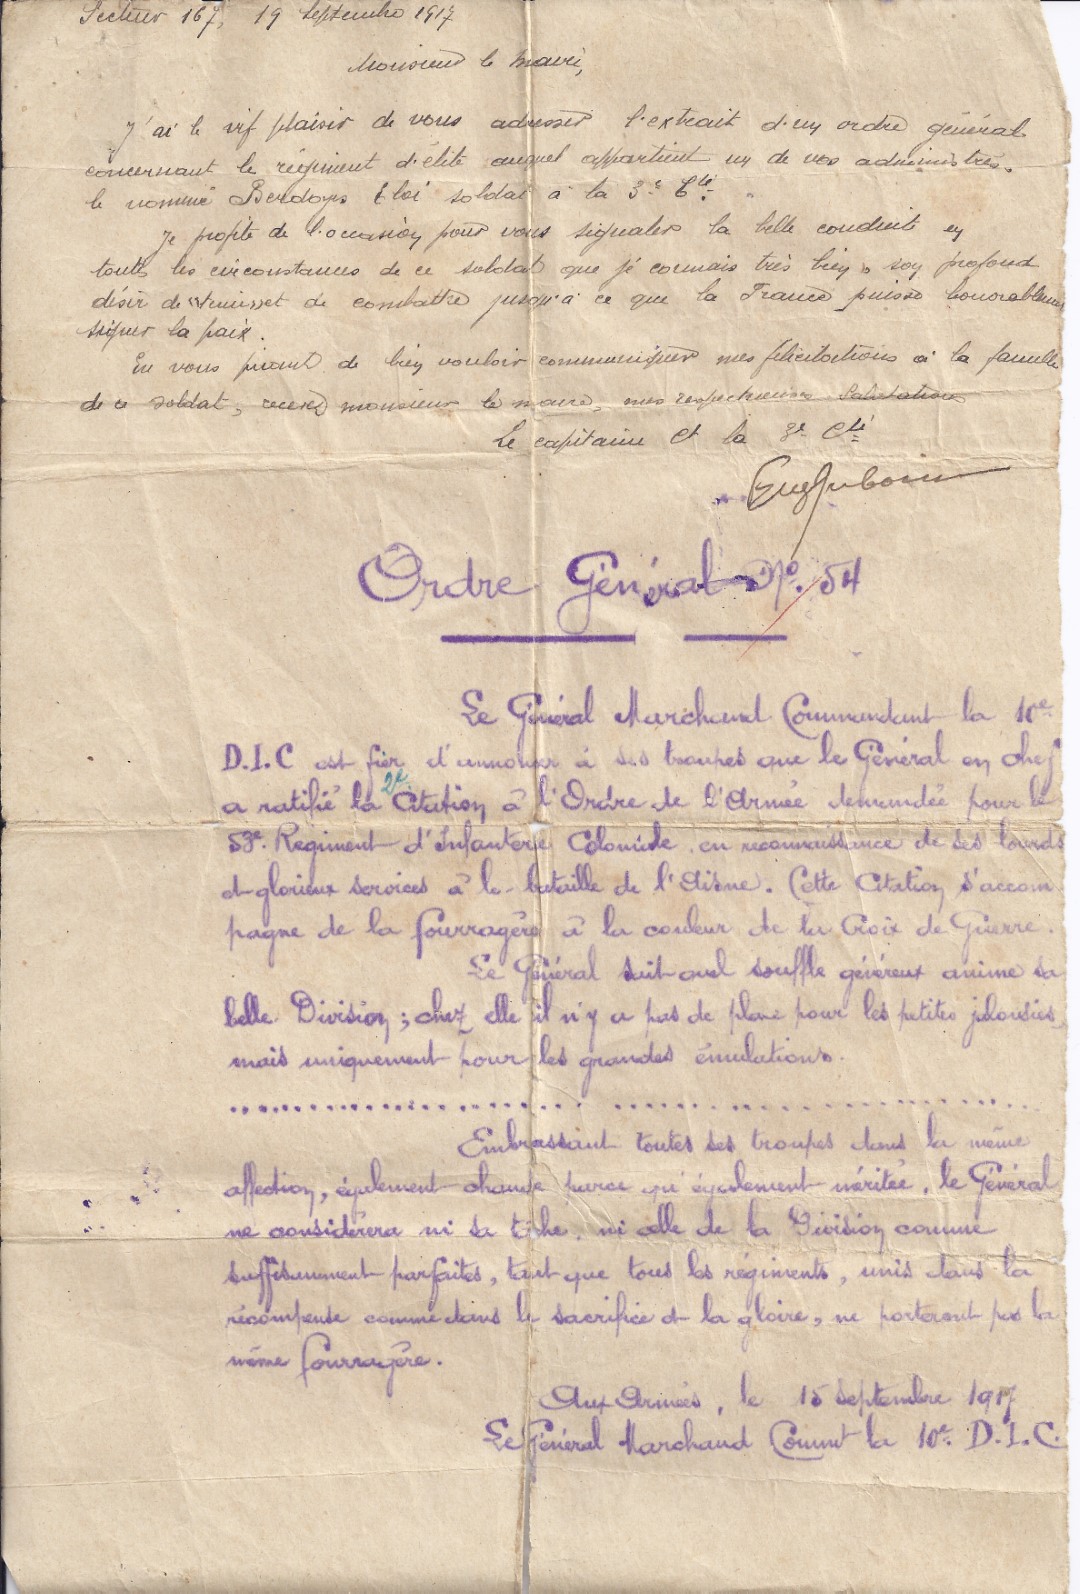 Secteur 167, 19 Septembre 1917
Monsieur le Maire,
J'ai le vif plaisir de vous adresser l'extrait d'un ordre général
concernant le régiment d'élite auquel appartient un de vos administrés.
le nommé Eloi soldat à la 3e Cie.
Je profite de l'occasion pour vous signaler la belle conduite en
toutes les circonstances de ce soldat que je connais très bien, son profond
désir de et de combattre jusqu'à ce que la France puisse honorablement
signer la paix.
En vous priant de bien vouloir communiquer mes félicitations à la famille
de ce soldat, recevez monsieur le maire, mes respectueuses Salutations
Le capitaine Ct la 3e Cie
Ordre Général No. 54
Le Général Marchand Commandant la 10e
D.I.C est fier d'annoncer à ses troupes que le Général en chef
a ratifié la 2e Citation à l'Ordre de l'Armée demandée pour le
53e. Regiment d'Infanterie Coloniale en reconnaissance de ses lourds
et glorieux services à la bataille de l'Aisne. Cette Citation s'accom
pagne de la fourragère à la couleur de la Croix de Guerre.
Le Général sait quel souffle généreux anime sa
belle Division; chez elle il n'y a pas de place pour les petites jalousies,
mais uniquement pour les grandes émulations.
........................................
Embrassant toutes ses troupes dans la même
affection, également chaude parce qu'également méritée, le Général
ne considérera ni sa tâche, ni celle de la Division comme
suffisamment parfaites, tant que tous les régiments, unis dans la
récompense comme dans le sacrifice et la gloire, ne porteront pas la
même fourragère.
Aux Armées, le 15 septembre 1917
Le Général Marchand Commt la 10e. D.I.C.